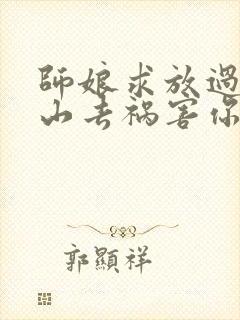 師娘求放過
山去禍害你
郭顯祥